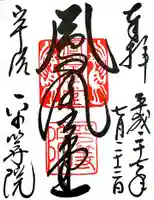 奉拝
平成二十七年
七月二十二日
鳳凰堂
宇治
平等院